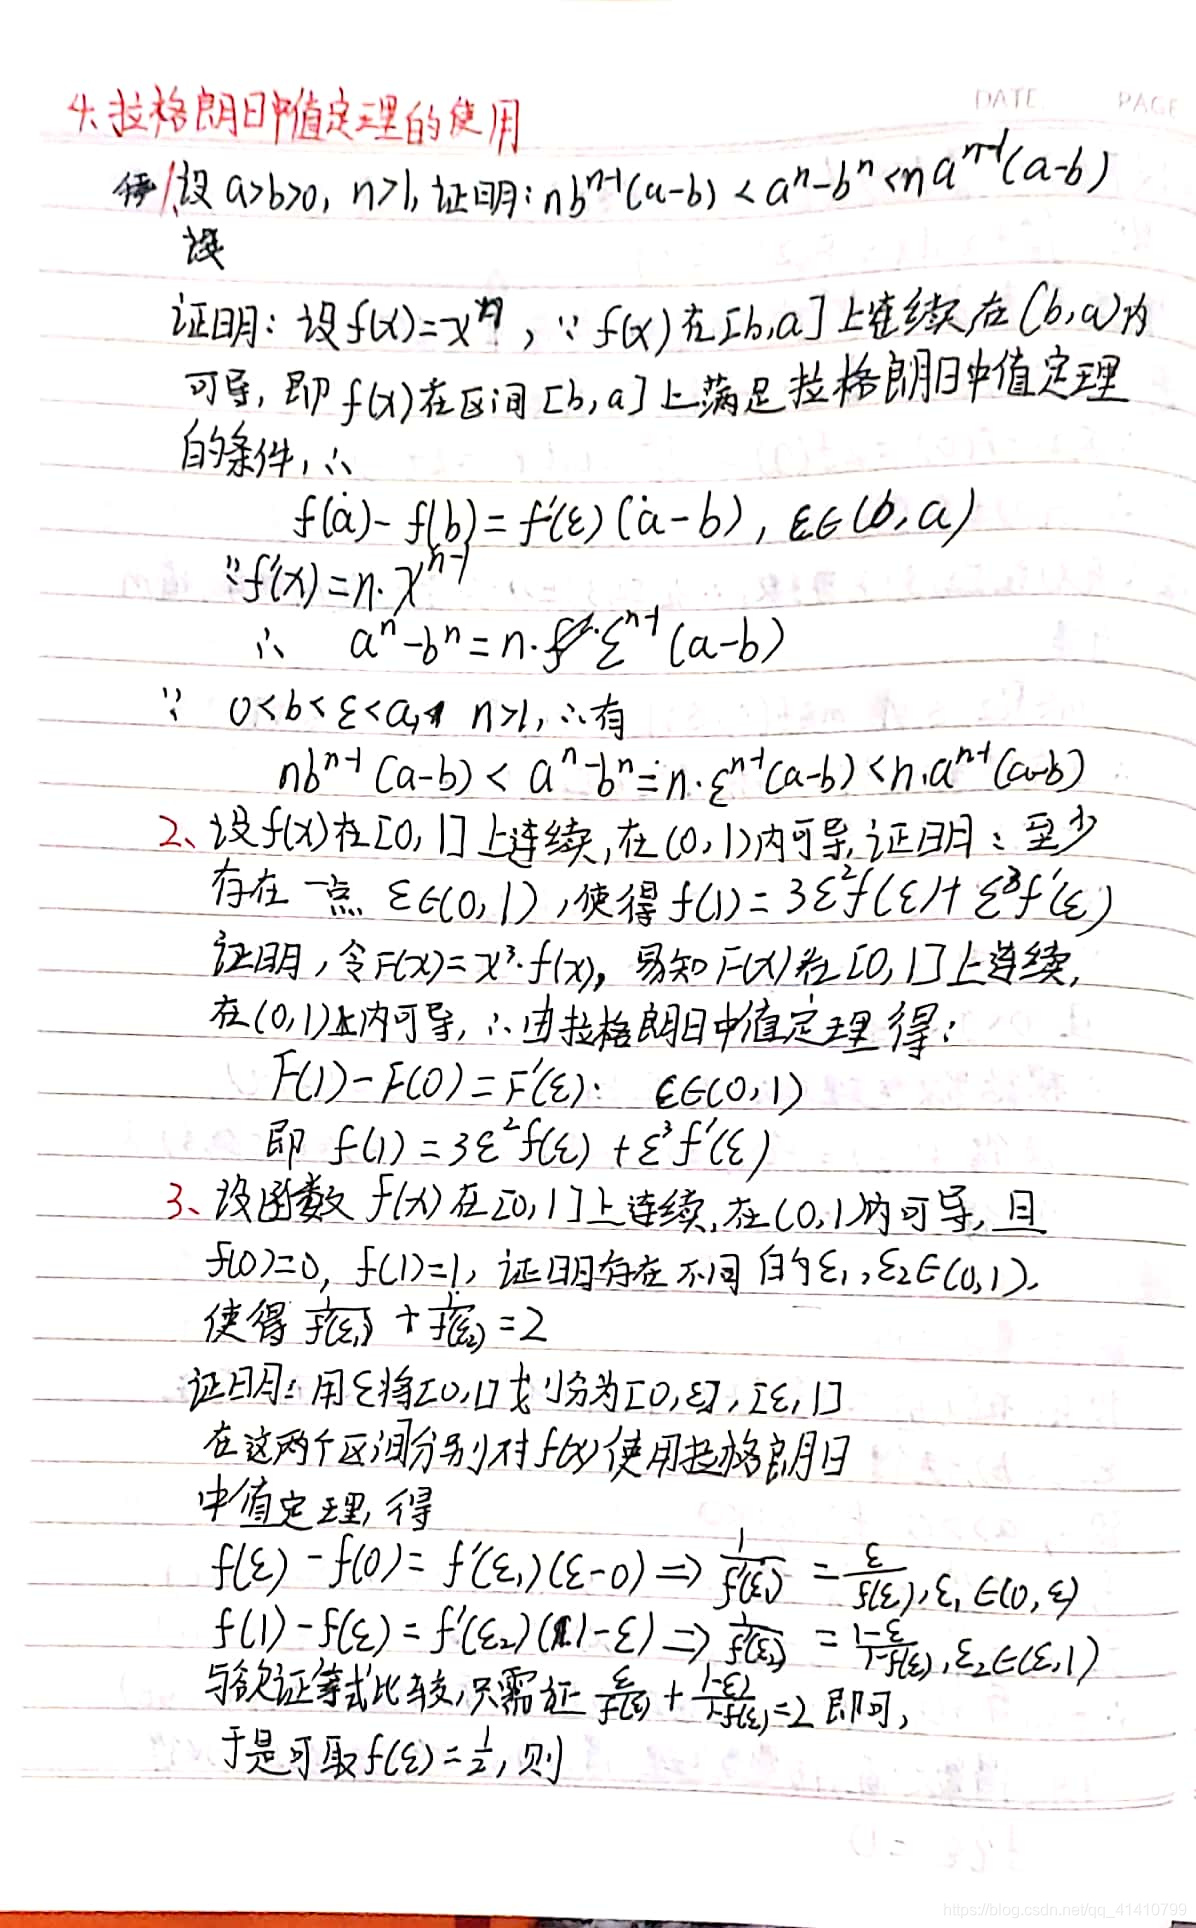 DATE PAGE
4、拉格朗日中值定理的使用
1、设 a>b>0, n>1, 证明: nb^{n-1}(a-b) < a^n-b^n < na^{n-1}(a-b)
证明: 设f(x)=x^n, ∵ f(x)在[b,a]上连续,在(b,a)内
可导, 即f(x)在区间[b,a]上满足拉格朗日中值定理
的条件, ∴
f(a)-f(b)=f'(ε)(a-b), ε∈(b,a)
∵f'(x)=n·x^{n-1}
∴ a^n-b^n=n·ε^{n-1}(a-b)
∵ 0<b<ε<a, n>1, ∴有
nb^{n-1}(a-b) < a^n-b^n=n·ε^{n-1}(a-b)<n·a^{n-1}(a-b)
2、设f(x)在[0,1]上连续,在(0,1)内可导,证明: 至少
存在一点 ε∈(0,1), 使得f(1)=3ε²f(ε)+ε³f'(ε)
证明, 令F(x)=x³·f(x), 易知F(x)在[0,1]上连续,
在(0,1)内可导, ∴由拉格朗日中值定理得:
F(1)-F(0)=F'(ε): ε∈(0,1)
即 f(1)=3ε²f(ε)+ε³f'(ε)
3、设函数f(x)在[0,1]上连续,在(0,1)内可导,且
f(0)=0, f(1)=1, 证明存在不同的ε₁,ε₂∈(0,1).
使得 1/f'(ε₁) + 1/f'(ε₂) =2
证明: 用ε将[0,1]划分为[0,ε],[ε,1]
在这两个区间分别对f(x)使用拉格朗日
中值定理, 得
f(ε)-f(0)=f'(ε₁)(ε-0) ⇒ 1/f'(ε₁) = ε/f(ε), ε₁∈(0,ε)
f(1)-f(ε)=f'(ε₂)(1-ε) ⇒ 1/f'(ε₂) = 1-ε/1-f(ε), ε₂∈(ε,1)
与欲证等式比较,只需证 ε/f(ε) + 1-ε/1-f(ε) =2 即可,
于是可取f(ε)=1/2, 则
https://blog.csdn.net/qq_41410799